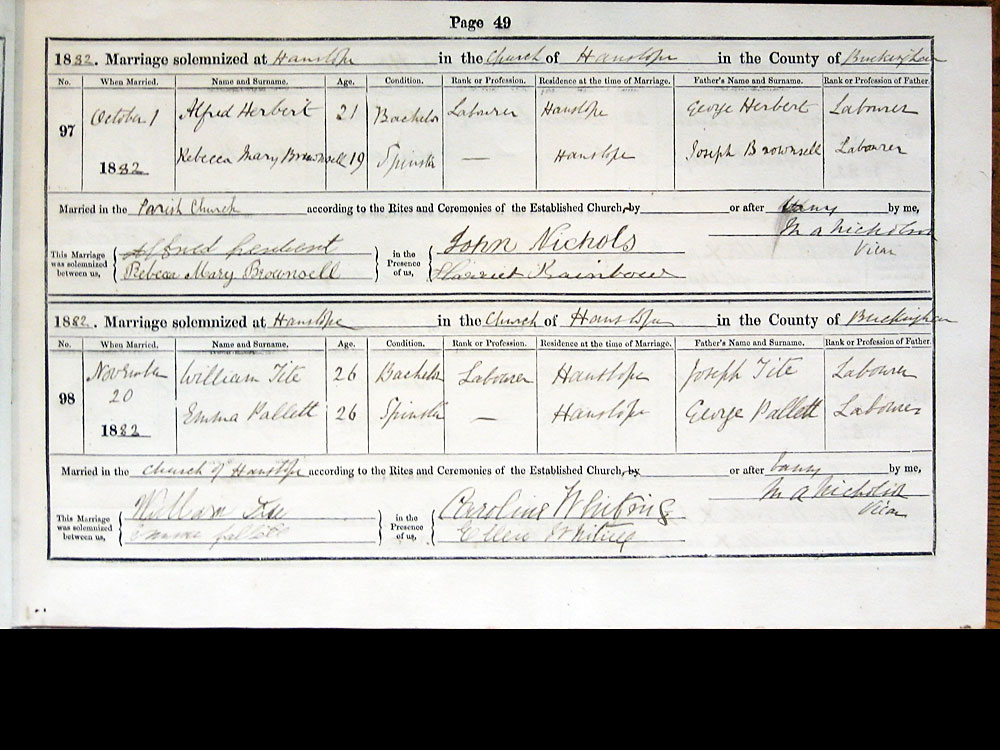 Page 49
1882. Marriage solemnized at Hanslope in the Church of Hanslope in the County of Buckingham
No. When Married. Name and Surname. Age. Condition. Rank or Profession. Residence at the time of Marriage. Father's Name and Surname. Rank or Profession of Father.
97 October 1 Alfred Herbert 21 Bachelor Labourer Hanslope George Herbert Labourer
1882 Rebecca Mary Brownsell 19 Spinster — Hanslope Joseph Brownsell Labourer
Married in the Parish Church according to the Rites and Ceremonies of the Established Church, by or after banns by me,
M A Nicholson
Vicar
This Marriage was solemnized between us, Alfred Herbert in the Presence of us, John Nichols
Rebecca Mary Brownsell Harriet Rainbow
1882. Marriage solemnized at Hanslope in the Church of Hanslope in the County of Buckingham
No. When Married. Name and Surname. Age. Condition. Rank or Profession. Residence at the time of Marriage. Father's Name and Surname. Rank or Profession of Father.
98 November 20 William Tite 26 Bachelor Labourer Hanslope Joseph Tite Labourer
1882 Emma Pallett 26 Spinster — Hanslope George Pallett Labourer
Married in the Church of Hanslope according to the Rites and Ceremonies of the Established Church, by or after banns by me,
M A Nicholson
Vicar
This Marriage was solemnized between us, William Tite in the Presence of us, Caroline Whiting
Emma Pallett Ellen Whiting